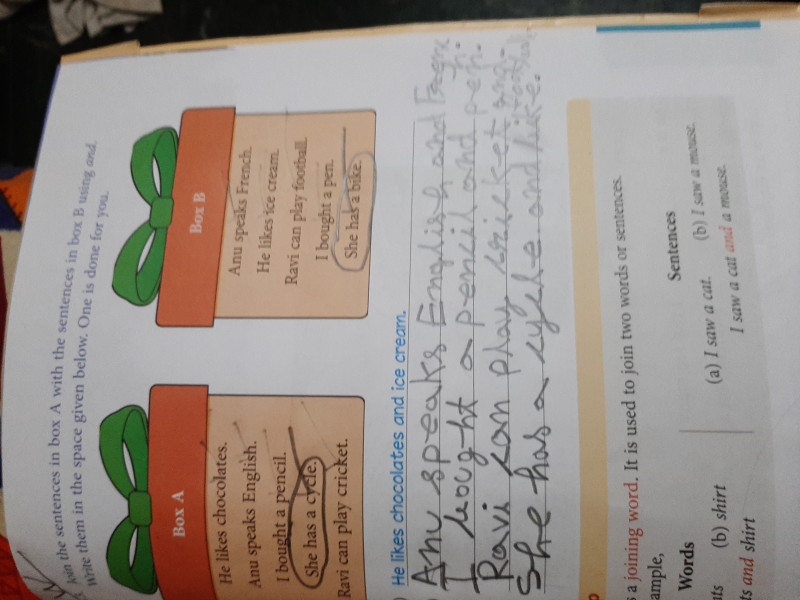 Join the sentences in box A with the sentences in box B using and.
Write them in the space given below. One is done for you.
Box A
He likes chocolates.
Anu speaks English.
I bought a pencil.
She has a cycle.
Ravi can play cricket.
Box B
Anu speaks French.
He likes ice cream.
Ravi can play football.
I bought a pen.
She has a bike.
He likes chocolates and ice cream.
Anu speaks English and
I bought a pencil and pen.
Ravi can play cricket and
She has a cycle and bike.
s a joining word. It is used to join two words or sentences.
ample,
Words
Sentences
nts (b) shirt
(a) I saw a cat. (b) I saw a mouse.
ts and shirt
I saw a cat and a mouse.